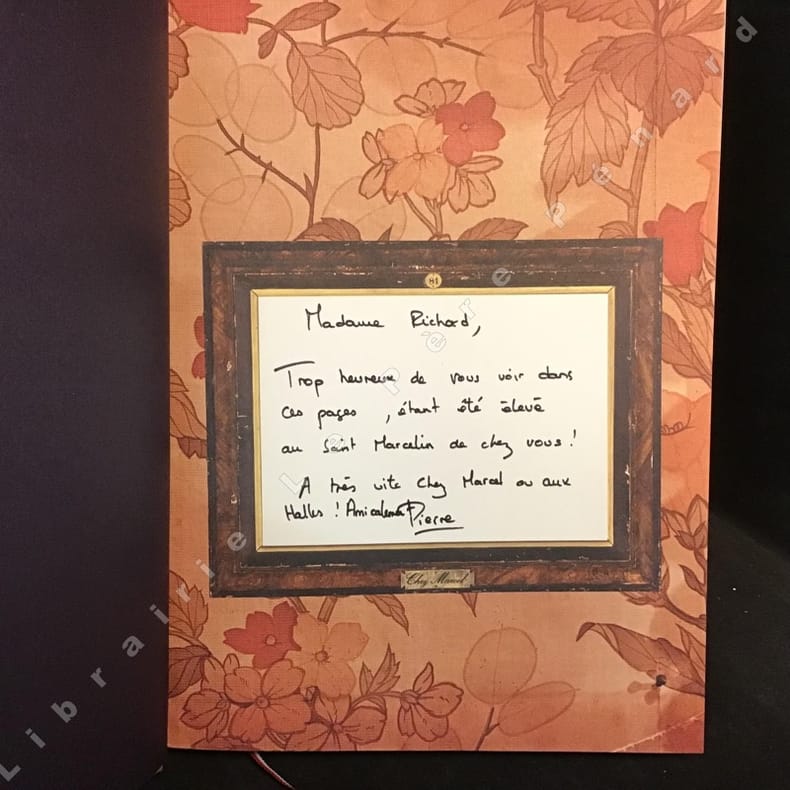 81
Madame Richard,
Trop heureux de vous voir dans
ces pages, étant été élevé
au Saint Marcelin de chez vous !
A très vite Chez Marcel ou aux
Halles ! Amicalement Pierre
Chez Marcel
Librairie Le Père Pénard